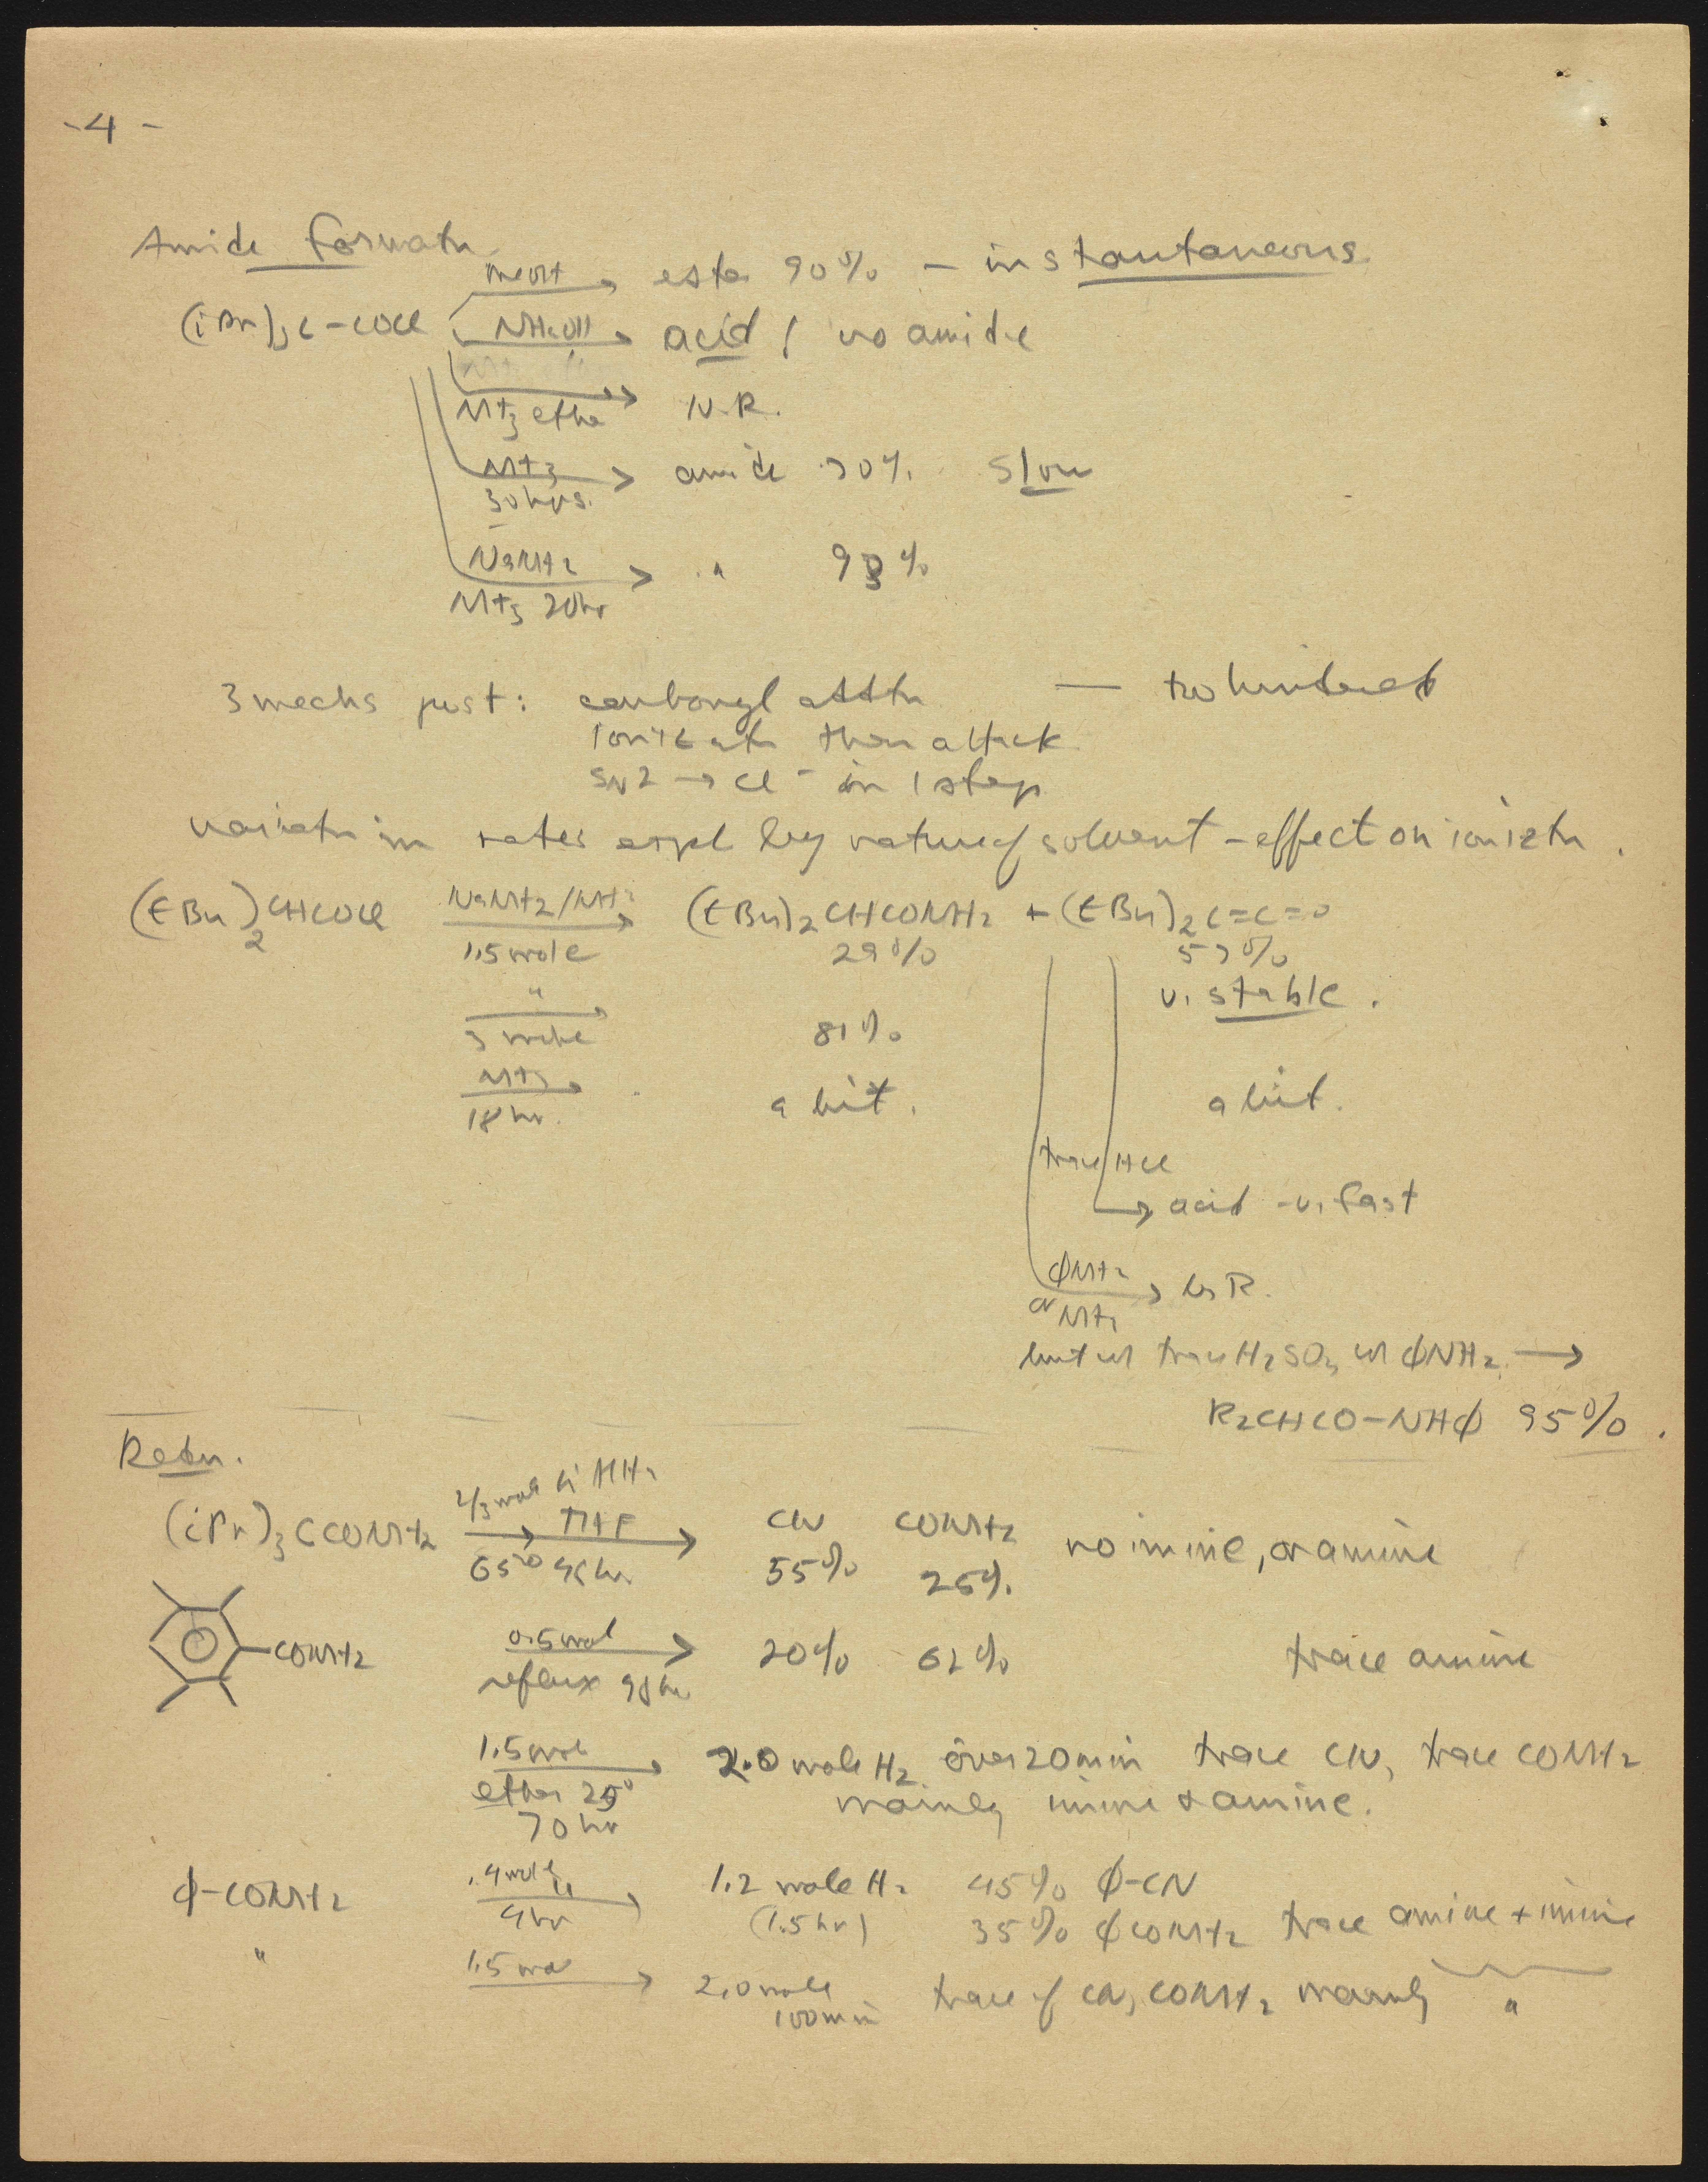 -4-
Amide formatn
MeOH → ester 90% - instantaneous
(iPr)3C-COCl NH4OH → acid / no amide
NH3 ether → N.R.
NH3 30hrs. → amide 70%. slow
NaNH2 NH3 20hr → " 93%
3 mechs post: carbonyl attk — too hindered
ionizatn then attack
SN2 → Cl⁻ in 1 step
variatn in rates expl by nature of solvent - effect on ioniztn.
(tBu)2CHCOCl NaNH2/NH3 1.5 mole → (tBu)2CHCONH2 + (tBu)2C=C=O
29% 57%
v. stable.
" 3 mole → 81%
NH3 18hr. → a bit. a bit.
trace HCl
→ acid - v. fast
ΦNH2 or NH3 → N.R.
but w trace H2SO4 w ΦNH2 →
R2CHCO-NHΦ 95%.
Redn.
(iPr)3CCONH2 2/3 mole LiAlH4 THF 65° 46hr → CN CONH2 no imine, or amine
55% 26%.
-CONH2 0.5 mol reflux 98hr → 20% 62% trace amine
1.5 mol ether 25° 70hr → 2.0 mole H2 over 20min trace CN, trace CONH2
mainly imine + amine.
Φ-CONH2 .4 mole " 4hr → 1.2 mole H2 45% Φ-CN
(1.5hr) 35% ΦCONH2 trace amine + imine
" 1.5 mol → 2.0 mole trace of CN, CONH2 mainly "
100min